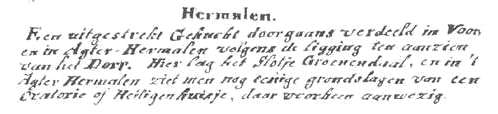 Hermalen.
Een uitgestrekt Gehucht doorgaans verdeeld in Voor
en in Agter-Hermalen volgens de ligging ten aanzien
van het Dorp. Hier lag het Slotje Groenendaal, en in 't
Agter Hermalen ziet men nog eenige grondslagen van een
Oratorie of Heiligenhuisje, daar voorheen aanwezig.